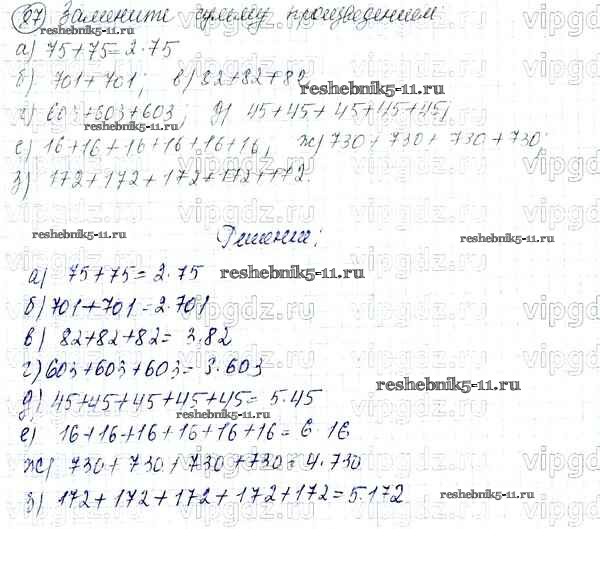 27 Замените сумму произведением
reshebnik5-11.ru
а) 75+75=2·75
б) 701+701; в) 82+82+82
reshebnik5-11.ru
г) 603+603+603; д) 45+45+45+45+45;
reshebnik5-11.ru
е) 16+16+16+16+16+16; ж) 730+730+730+730;
з) 172+172+172+172+172.
reshebnik5-11.ru
Решение:
reshebnik5-11.ru
reshebnik5-11.ru
а) 75+75=2·75
reshebnik5-11.ru
б) 701+701=2·701
в) 82+82+82=3·82
г) 603+603+603=3·603
reshebnik5-11.ru
д) 45+45+45+45+45=5·45
reshebnik5-11.ru
е) 16+16+16+16+16+16=6·16
ж) 730+730+730+730=4·730
з) 172+172+172+172+172=5·172
reshebnik5-11.ru
vipgdz.ru